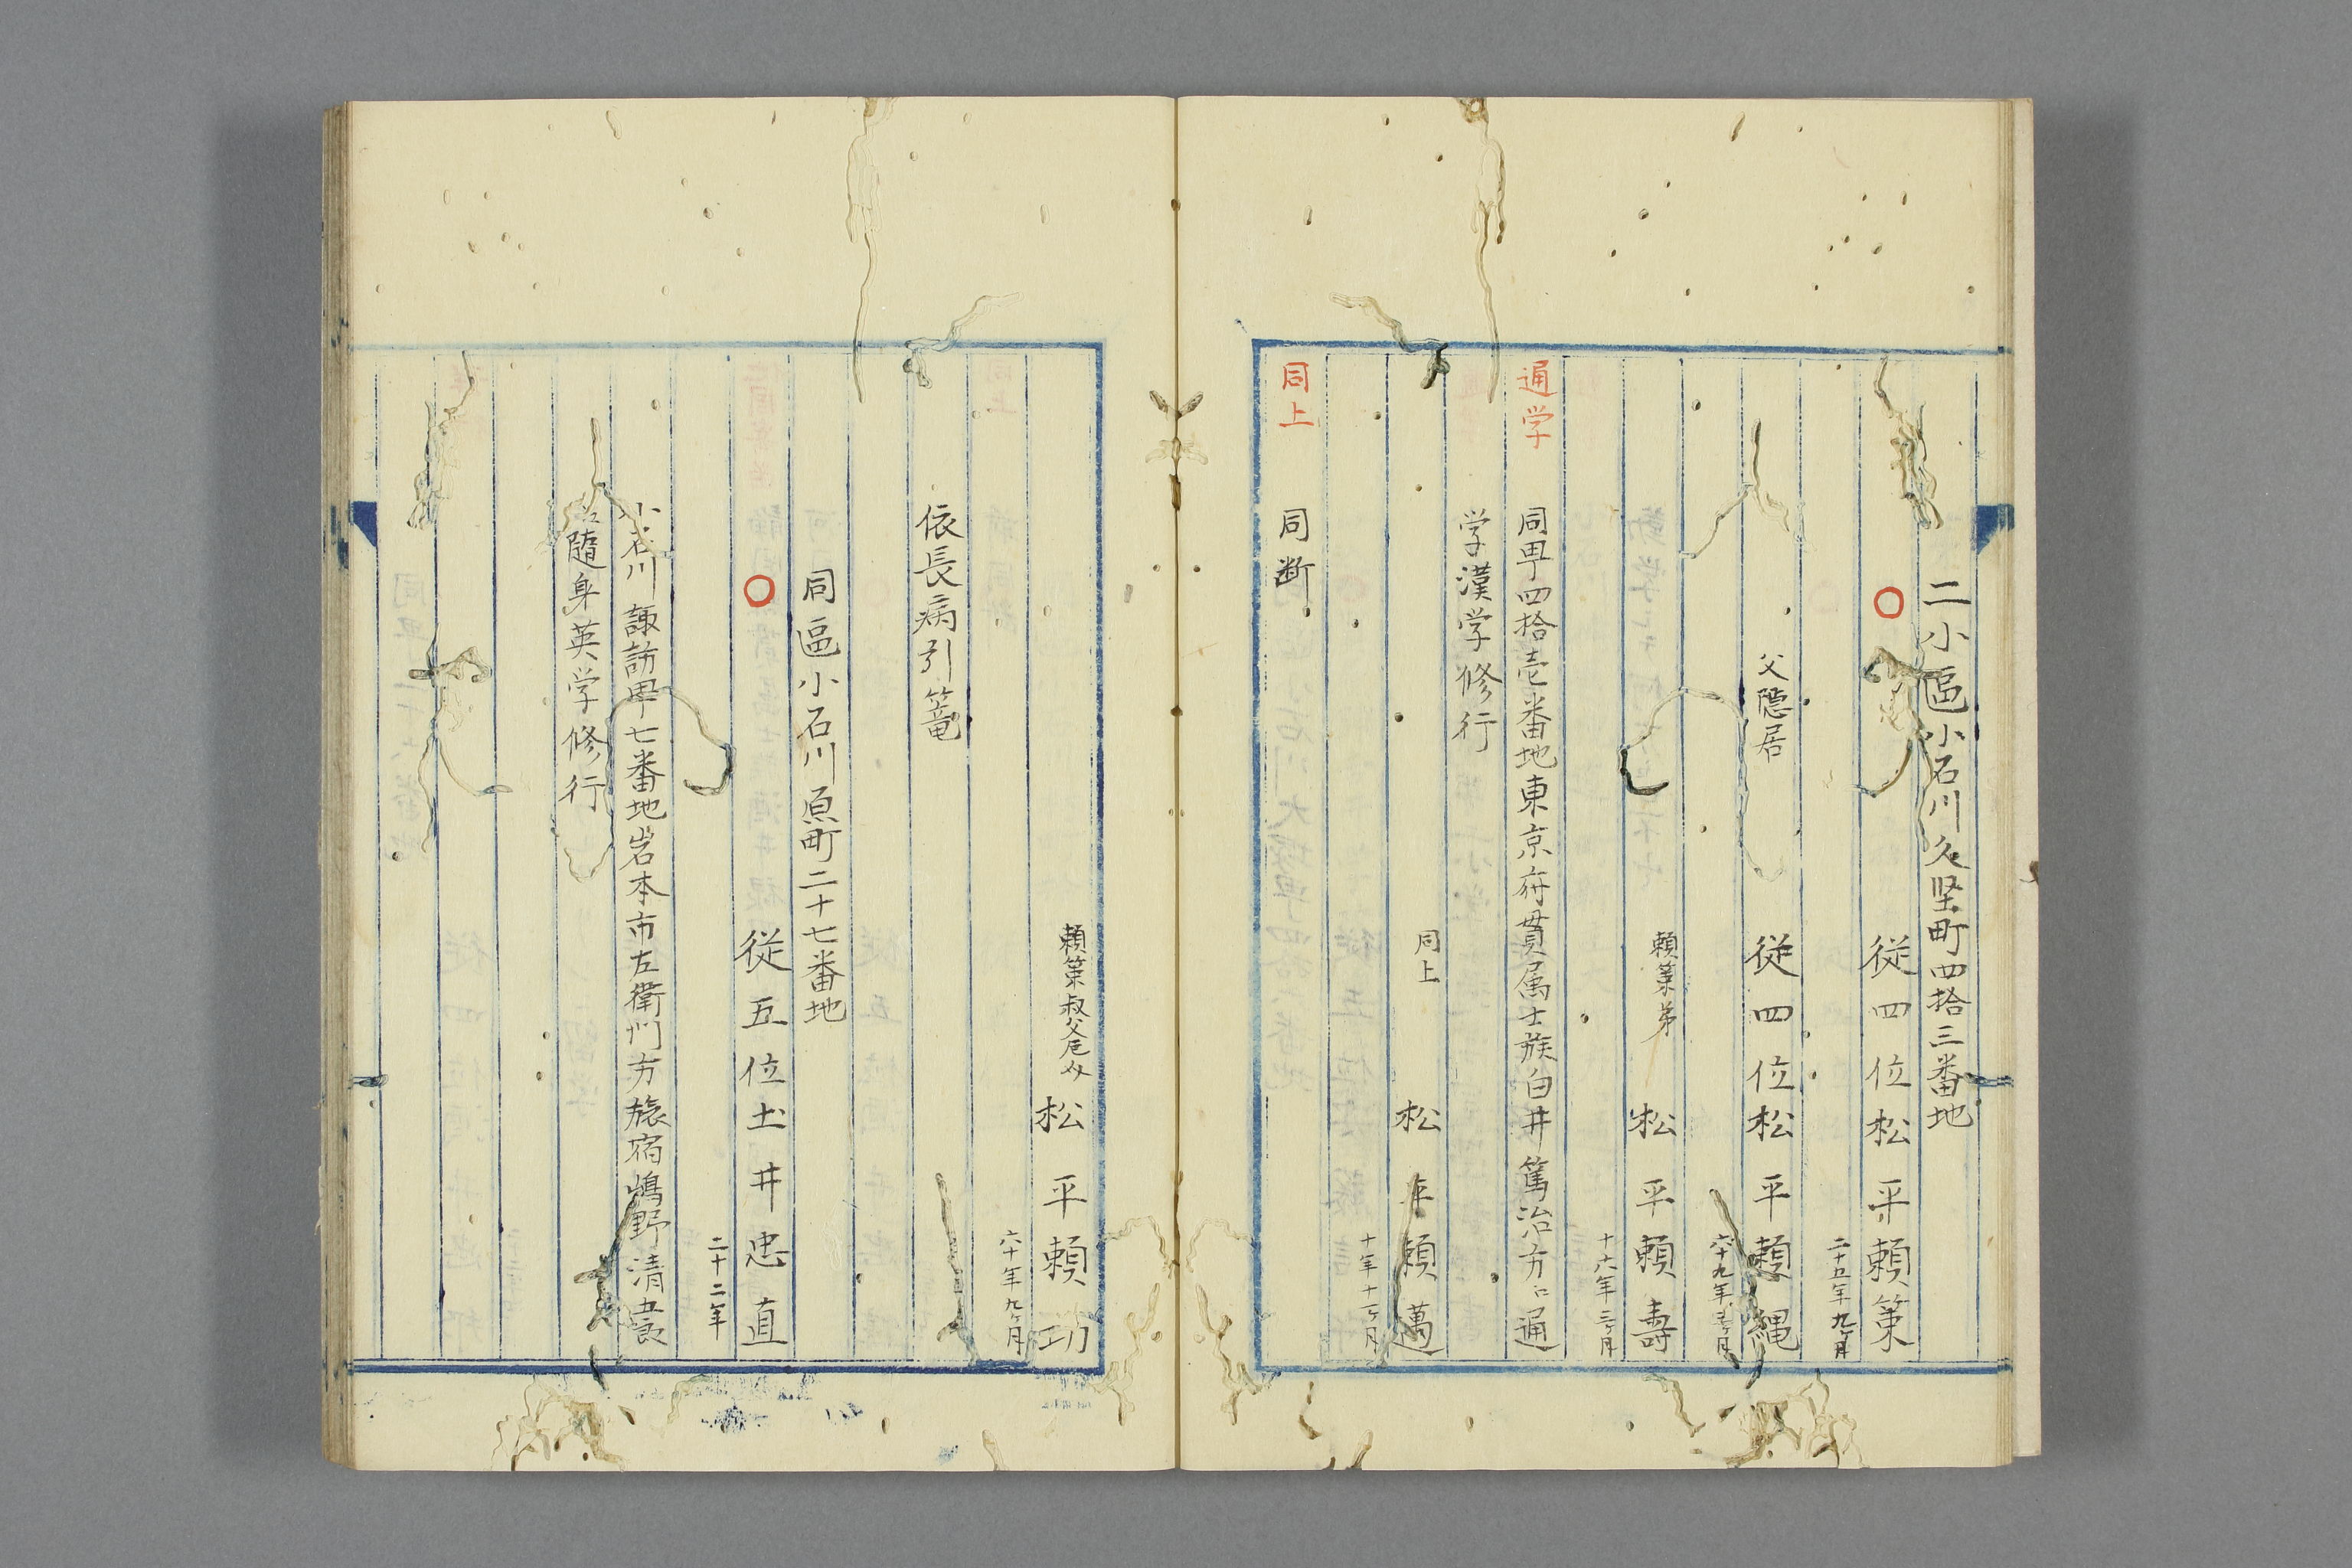 二小區小石川久堅町四拾三番地
○ 従四位松平頼策
二十五年九ヶ月
父隠居 従四位松平頼縄
六十九年
頼策弟 松平頼壽
十六年三ヶ月
通学 同甼四拾壱番地東京府貫属士族白井篤治方ニ通
学漢学修行
同上 松平頼邁
十年十一ヶ月
同上 同断
頼策叔父厄介 松平頼功
六十年九ヶ月
依長病引篭
同區小石川原町二十七番地
○ 従五位土井忠直
二十二年
小石川諏訪甼七番地岩本市左衛門方旅宿嶋野清
随身英学修行